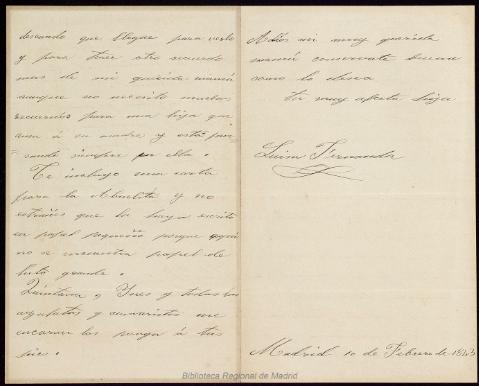 deseando que llegue para verlo
y para tener otro recuerdo
mas de mi querida mamá
aunque no necesito muchos
recuerdos para una hija que
ama á su madre y está pen
sando siempre por ella.
Te incluyo una carta
para la Abuelita y no
estrañes que la haya escrito
en papel pequeño porque aqui
no se encuentra papel de
luto grande.
Quintana y Ynes y todos los
y camaristas me
encargan los ponga á tus
pies.
Adios mi muy querida
mamá consérvate buena
como lo desea
tu muy afecta hija
Luisa Fernanda
Madrid 10 de Febrero de
Biblioteca Regional de Madrid